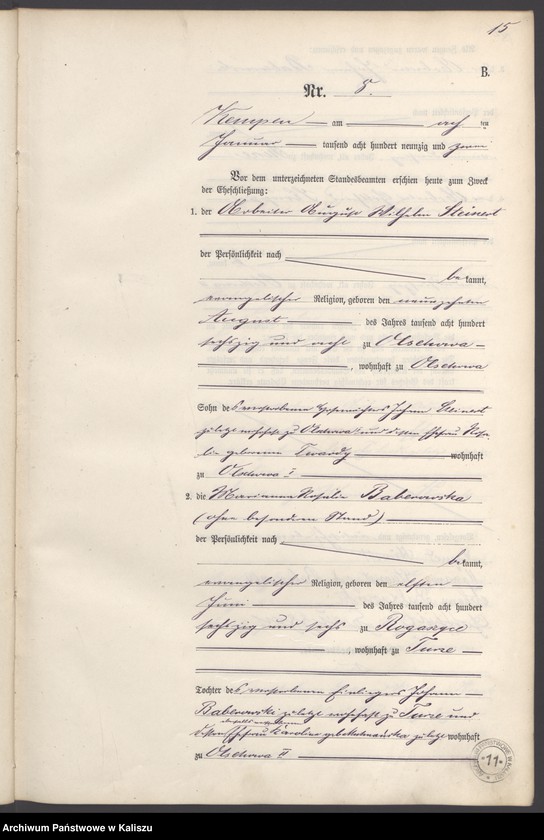 15
B.
Nr. 5.
Kempen am acht ten
Januar tausend acht hundert neunzig und zwei
Vor dem unterzeichneten Standesbeamten erschien heute zum Zweck
der Eheschließung:
1. der Arbeiter August Wilhelm Steinert
der Persönlichkeit nach
be kannt,
evangelischer Religion, geboren den neunzehnten
August des Jahres tausend acht hundert
sechszig und acht zu Olschowa
, wohnhaft zu Olschowa
Sohn des verstorbenen Johann Steinert
zuletzt wohnhaft zu Olschowa und dessen Ehefrau Rosa-
lie geborene Twardy wohnhaft
zu Olschowa I
2. die Marianna Rosalie Baberowska
(ohne besondern Stand)
der Persönlichkeit nach
be kannt,
evangelischer Religion, geboren den elften
Juni des Jahres tausend acht hundert
sechszig und sechs zu Rogaszyce
, wohnhaft zu Turze
Tochter des verstorbenen Einliegers Johann
Baberowski zuletzt wohnhaft zu Turze und
dessen Ehefrau Karoline geb. zuletzt wohnhaft
zu Olschowa II
11
Archiwum Państwowe w Kaliszu